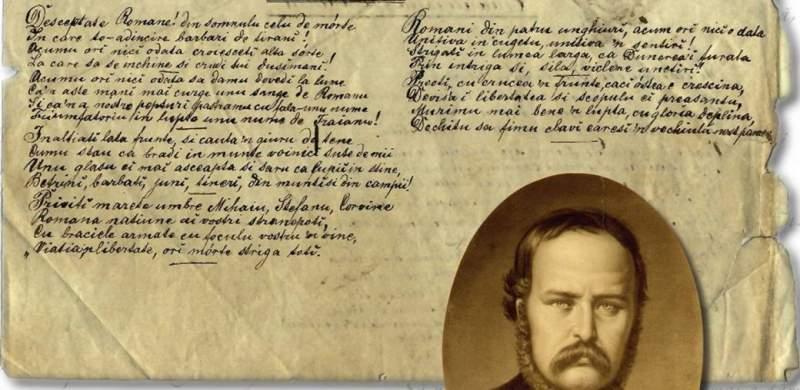 Desceptate Romane! din somnulu celu de mórte
In care te-adincire barbari de tirani!
Acumu ori nici odata croiesceti alta sorte
La care sa se inchine si crudi tui dusimani!
Acumu ori nici odata sa damu dovedi la lume
Ca'n aste mani mai curge unu sange de Romanu
Si ca'n a nostre pepturi pastramu cu fala-unu nume
Triumfatoriu in lupte unu nume de Traianu!
Inaltiati lata frunte, si cauta'n giuru de tene
Cumu stau ca bradi in munte voinici sute de mii
Unu glasu ei mai ascepta si saru ca lupii in stine,
Betrini, barbati, juni, tineri, din munti si din campii!
Priviti marete umbre Mihaiu, Stefanu, Corvine
Romana natiune ai vostri stranepoti,
Cu braciele armate cu foculu vostru 'n vine,
"Viatia'n libertate, ori mórte striga toti.
Romani din patru unghiuri, acum ori nici o data
Uniti va in cugetu, uniti va 'n sentiri!
Strigati in lumea larga, ca Dunerea-i furata
Prin intriga si, sila, viclene unctiri!
Preoti, cu crucea 'n frunte, caci óstea e crescina,
Devisa-i libertatea si scopulu ei preasantu,
Murimu mai bene 'n lupta, cu gloria deplina,
Dechitu sa fimu clavi earesi 'n vechiulu nost